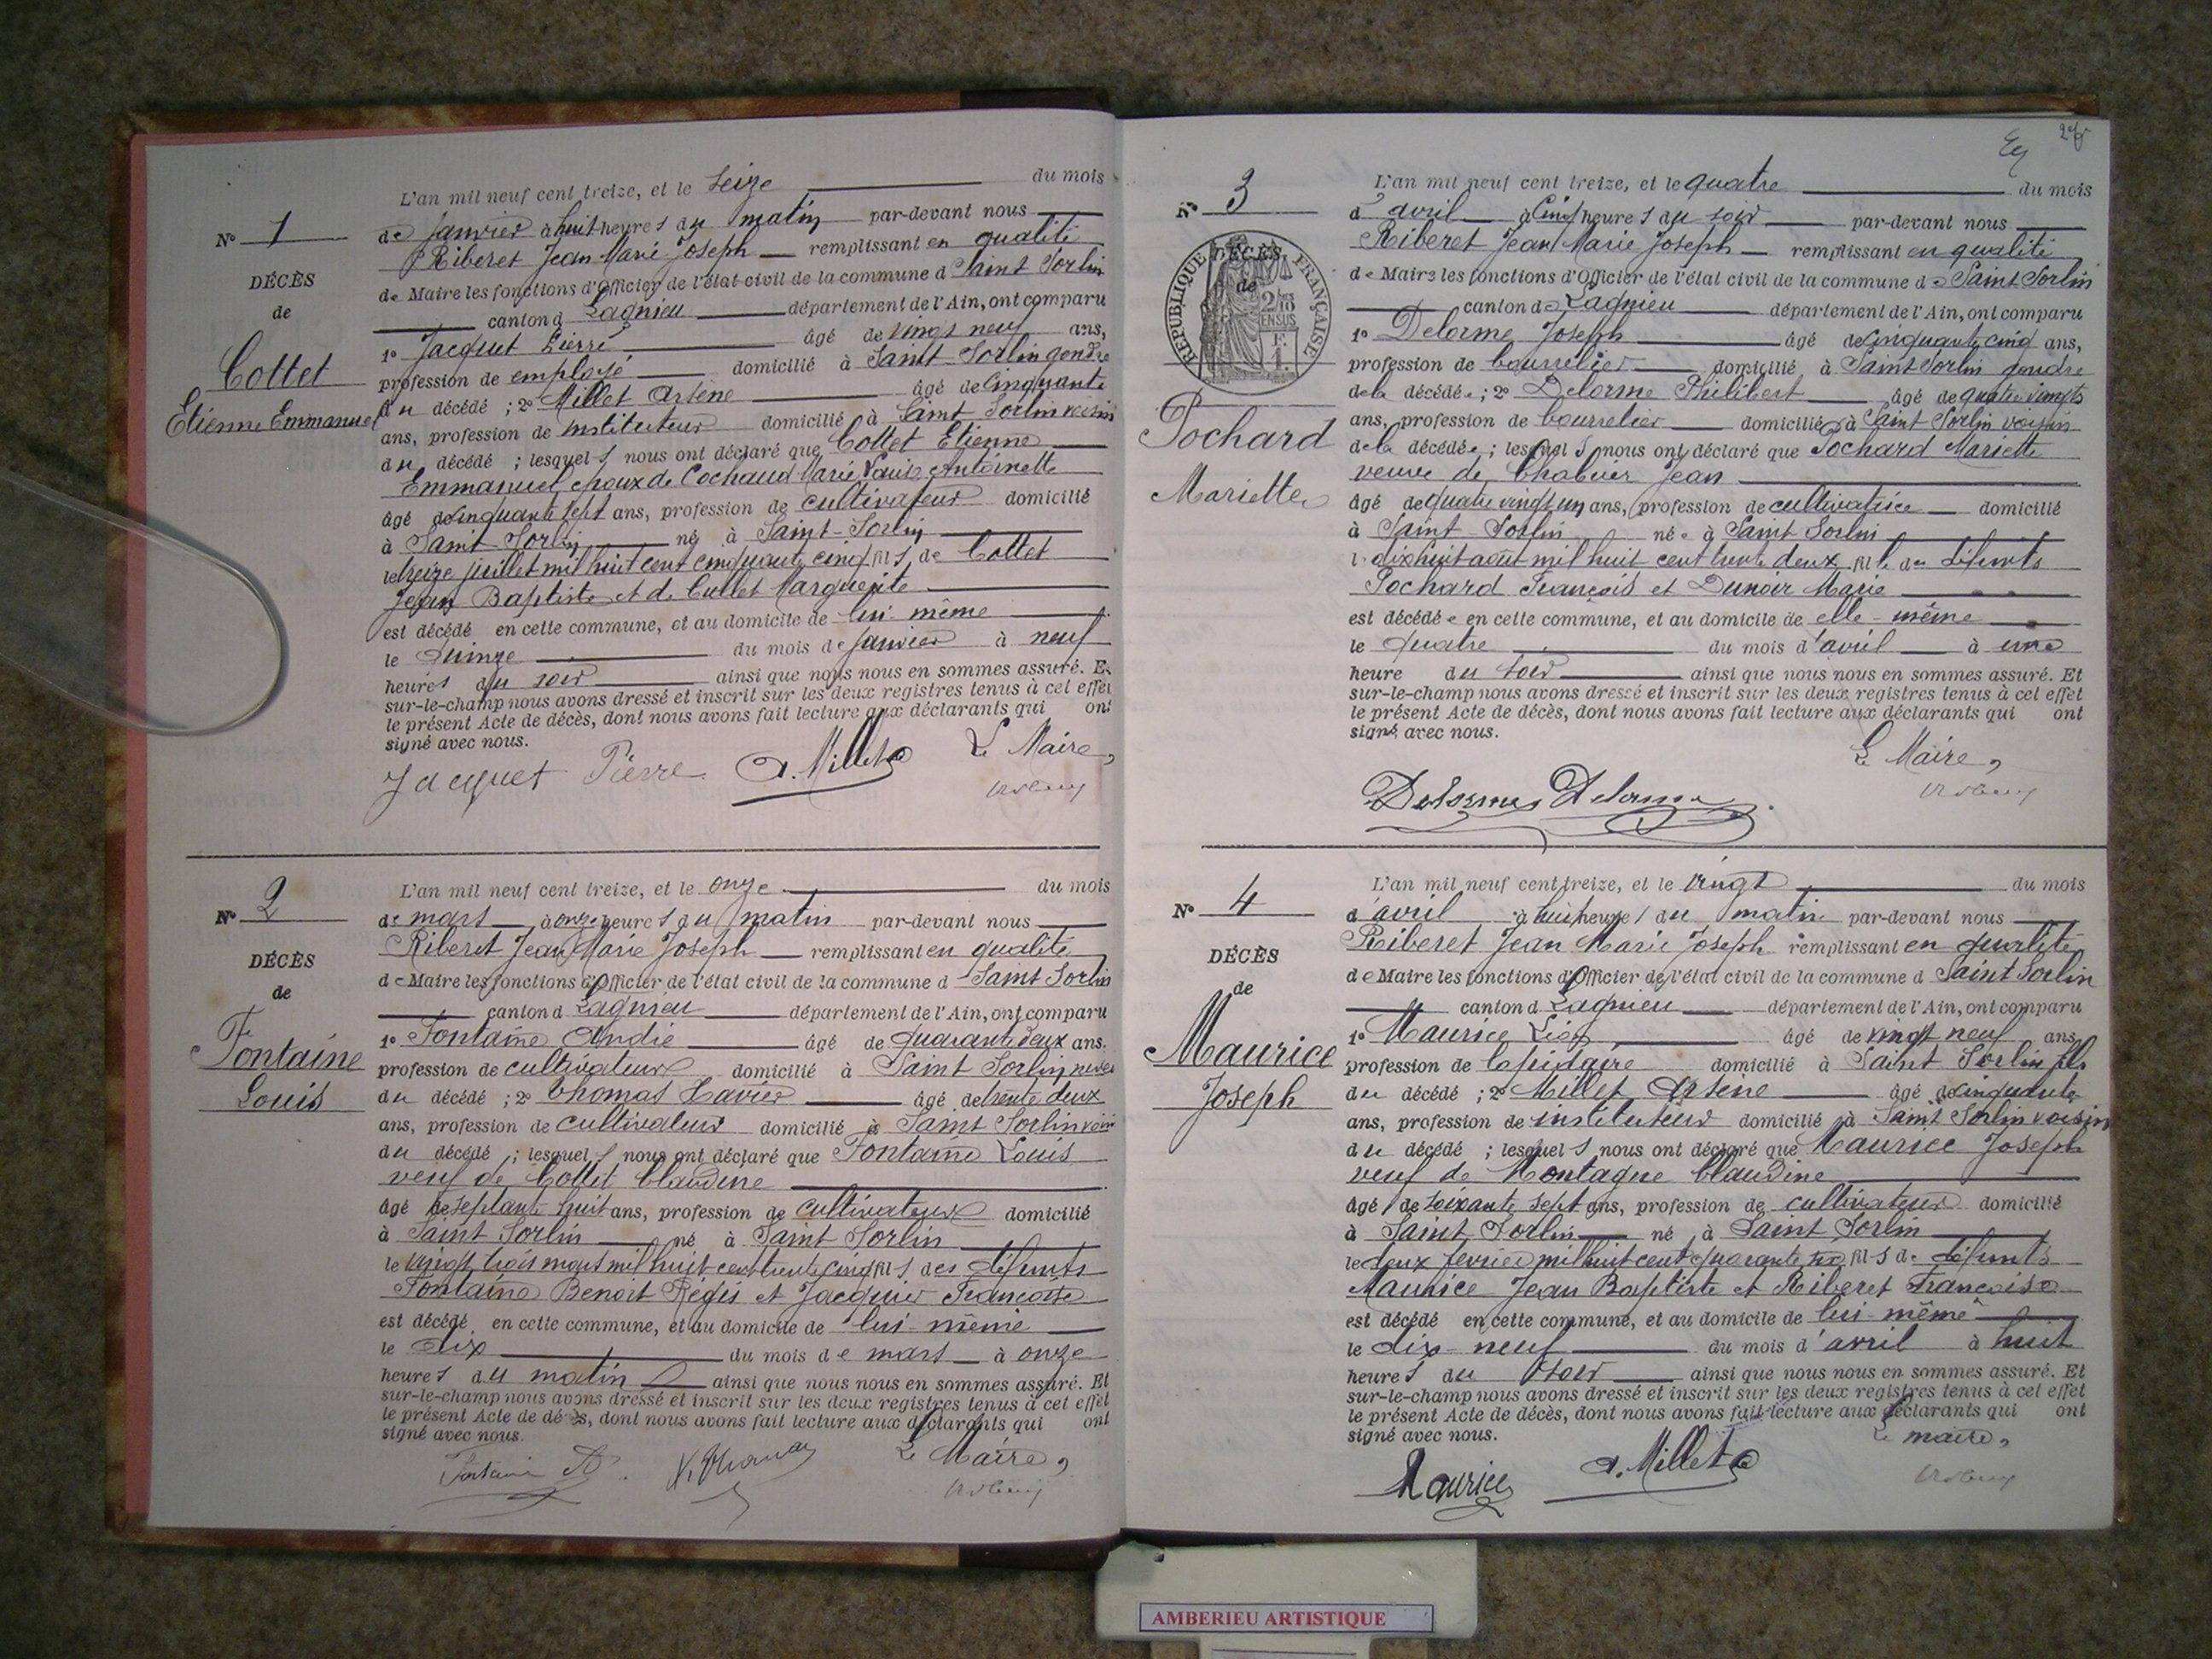 L'an mil neuf cent treize, et le seize du mois
N° 1
de Janvier à huit heures du matin par-devant nous
Riberet Jean Marie Joseph remplissant en qualité
DÉCÈS
de Maire les fonctions d'Officier de l'état civil de la commune d Saint Sorlin
de
canton d Lagnieu département de l'Ain, ont comparu
1° Jacquet Pierre âgé de vingt neuf ans,
Cottet
profession de employé domicilié à Saint Sorlin gendre
Etienne Emmanuel
du décédé ; 2° Millet Arsène âgé de cinquante
ans, profession de instituteur domicilié à Saint Sorlin voisin
du décédé ; lesquels nous ont déclaré que Cottet Etienne
Emmanuel, époux de Cochaud Marie Louise Antoinette
âgé de cinquante sept ans, profession de cultivateur domicilié
à Saint Sorlin né à Saint-Sorlin
le treize juillet mil huit cent cinquante cinq fils de Cottet
Jean Baptiste et de Cullet Marguerite
est décédé en cette commune, et au domicile de lui-même
le Quinze du mois de janvier à neuf
heures du soir ainsi que nous nous en sommes assuré. Et
sur-le-champ nous avons dressé et inscrit sur les deux registres tenus à cet effet
le présent Acte de décès, dont nous avons fait lecture aux déclarants qui ont
signé avec nous.
Jacquet Pierre A. Millet Le Maire,
L'an mil neuf cent treize, et le onze du mois
N° 2
de mars à onze heures du matin par-devant nous
Riberet Jean Marie Joseph remplissant en qualité
DÉCÈS
de Maire les fonctions d'Officier de l'état civil de la commune d Saint Sorlin
de
canton d Lagnieu département de l'Ain, ont comparu
Fontaine
1° Fontaine André âgé de quarante deux ans.
profession de cultivateur domicilié à Saint Sorlin neveu
Louis
du décédé ; 2° Thomas Xavier âgé de trente deux
ans, profession de cultivateur domicilié à Saint Sorlin voisin
du décédé ; lesquels nous ont déclaré que Fontaine Louis
veuf de Cottet Claudine
âgé de septante huit ans, profession de cultivateur domicilié
à Saint Sorlin né à Saint Sorlin
le vingt trois mars mil huit cent trente cinq fils des défunts
Fontaine Benoit Régis et Jacquier Françoise
est décédé en cette commune, et au domicile de lui-même
le dix du mois de mars à onze
heures du matin ainsi que nous nous en sommes assuré. Et
sur-le-champ nous avons dressé et inscrit sur les deux registres tenus à cet effet
le présent Acte de décès, dont nous avons fait lecture aux déclarants qui ont
signé avec nous.
Fontaine A. X. Thomas Le Maire,
L'an mil neuf cent treize, et le quatre du mois
N° 3
d'avril à Cinq heures du soir par-devant nous
Riberet Jean Marie Joseph remplissant en qualité
DÉCÈS
de
RÉPUBLIQUE FRANÇAISE
de Maire les fonctions d'Officier de l'état civil de la commune de Saint Sorlin
canton de Lagnieu département de l'Ain, ont comparu
1° Delorme Joseph âgé de cinquante cinq ans,
profession de bourrelier domicilié à Saint Sorlin gendre
de la décédée ; 2° Delorme Philibert âgé de quatre vingts
Pochard
ans, profession de bourrelier domicilié à Saint Sorlin voisin
de la décédée ; lesquels nous ont déclaré que Pochard Mariette
Mariette
veuve de Chabuer Jean
âgé de quatre vingt un ans, profession de cultivatrice domicilié
à Saint-Sorlin née à Saint Sorlin
le dix huit août mil huit cent trente deux fille de défunts
Pochard François et Dunoir Marie
est décédée en cette commune, et au domicile de elle-même
le quatre du mois d'avril à une
heure du soir ainsi que nous nous en sommes assuré. Et
sur-le-champ nous avons dressé et inscrit sur les deux registres tenus à cet effet
le présent Acte de décès, dont nous avons fait lecture aux déclarants qui ont
signé avec nous.
Le Maire,
Delorme Delorme
L'an mil neuf cent treize, et le vingt du mois
N° 4
d'avril à huit heures du matin par-devant nous
Riberet Jean Marie Joseph remplissant en qualité
DÉCÈS
de Maire les fonctions d'Officier de l'état civil de la commune d Saint Sorlin
de
canton d Lagnieu département de l'Ain, ont comparu
Maurice
1° Maurice Léon âgé de vingt neuf ans
profession de lapidaire domicilié à Saint Sorlin fils
Joseph
du décédé ; 2° Millet Arsène âgé de cinquante
ans, profession de instituteur domicilié à Saint Sorlin voisin
du décédé ; lesquels nous ont déclaré que Maurice Joseph
veuf de Montagne Claudine
âgé de soixante sept ans, profession de cultivateur domicilié
à Saint Sorlin né à Saint Sorlin
le deux février mil huit cent quarante fils de défunts
Maurice Jean Baptiste et Riberet Françoise
est décédé en cette commune, et au domicile de lui-même
le dix-neuf du mois d'avril à huit
heures du soir ainsi que nous nous en sommes assuré. Et
sur-le-champ nous avons dressé et inscrit sur les deux registres tenus à cet effet
le présent Acte de décès, dont nous avons fait lecture aux déclarants qui ont
signé avec nous.
Le maire,
Maurice A. Millet
AMBERIEU ARTISTIQUE